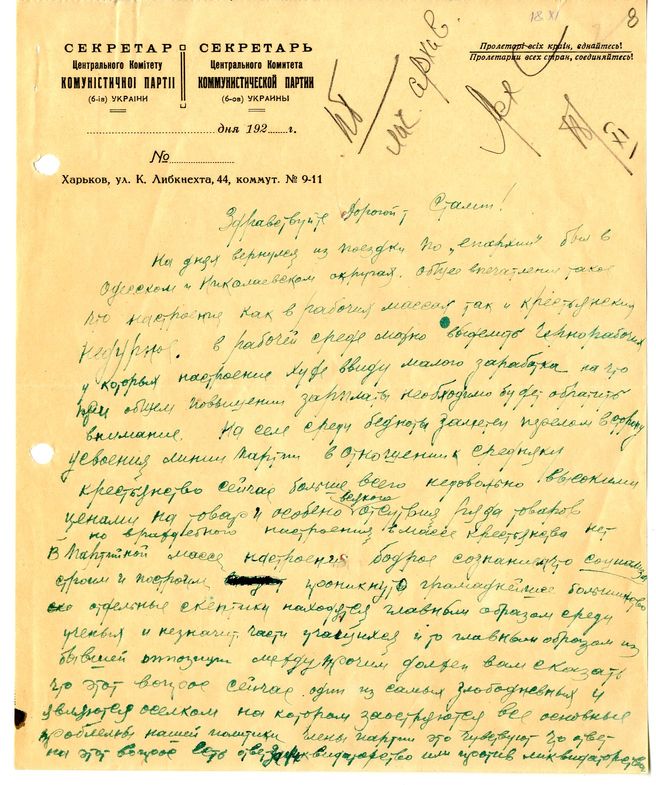 18 XI
8
СЕКРЕТАР
Центрального Комітету
КОМУНІСТИЧНОЇ ПАРТІЇ
(б-ів) УКРАЇНИ
СЕКРЕТАРЬ
Центрального Комитета
КОММУНИСТИЧЕСКОЙ ПАРТИИ
(б-ов) УКРАИНЫ
Пролетарі всіх країн, єднайтесь!
Пролетарии всех стран, соединяйтесь!
архив
дня 192 г.
№
Харьков, ул. К. Либкнехта, 44, коммут. № 9-11
Здравствуйте Дорогой т Сталин!
На днях вернулся из поездки по „епархии" был в
Одесском и Николаевском округах. Общее впечатление такое
что настроения как в рабочих массах так и крестьянских
недурное. В рабочей среде можно выделить чернорабочих
у которых настроение хуже ввиду малого заработка на что
при общем повышении зарплаты необходимо будет обратить
внимание. На селе среди бедноты заметен перелом в сторону
усвоения линии партии в отношении к середняку
крестьянство сейчас больше всего недовольно высокими
ценами на товар и особено отсутствия ряда товаров
но враждебного настроения в массе крестьянства нет
В партийной массе настроения бодрое сознанием что социализм
строим и построим проникнуто громаднейшее большинство
отдельные скептики находятся главным образом среди
ученых и незначит. части учащихся и то главным образом из
бывшей оппозиции между прочим должен вам сказать
что этот вопрос сейчас один из самых злободневных и
является оселком на котором заостряются все основные
проблемы нашей политики члены партии это чувствуют что ответ
на этот вопрос есть ответ за ликвидаторство или против ликвидаторства